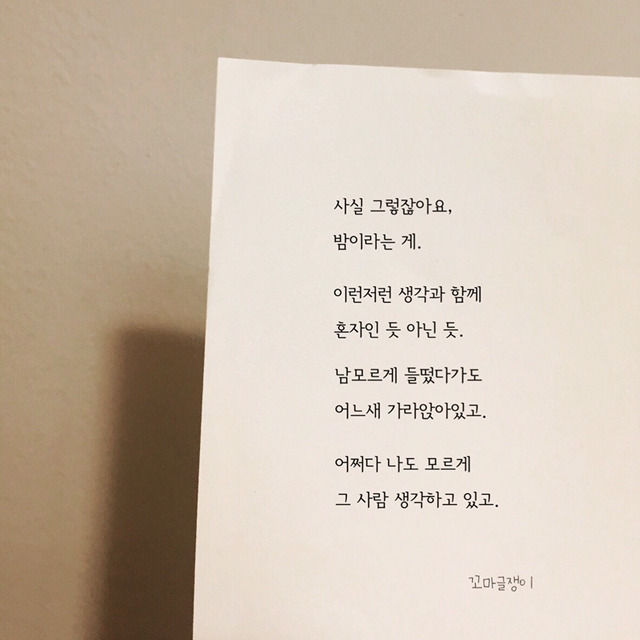 사실 그렇잖아요,
밤이라는 게.
이런저런 생각과 함께
혼자인 듯 아닌 듯.
남모르게 들떴다가도
어느새 가라앉아있고.
어쩌다 나도 모르게
그 사람 생각하고 있고.
꼬마글쟁이